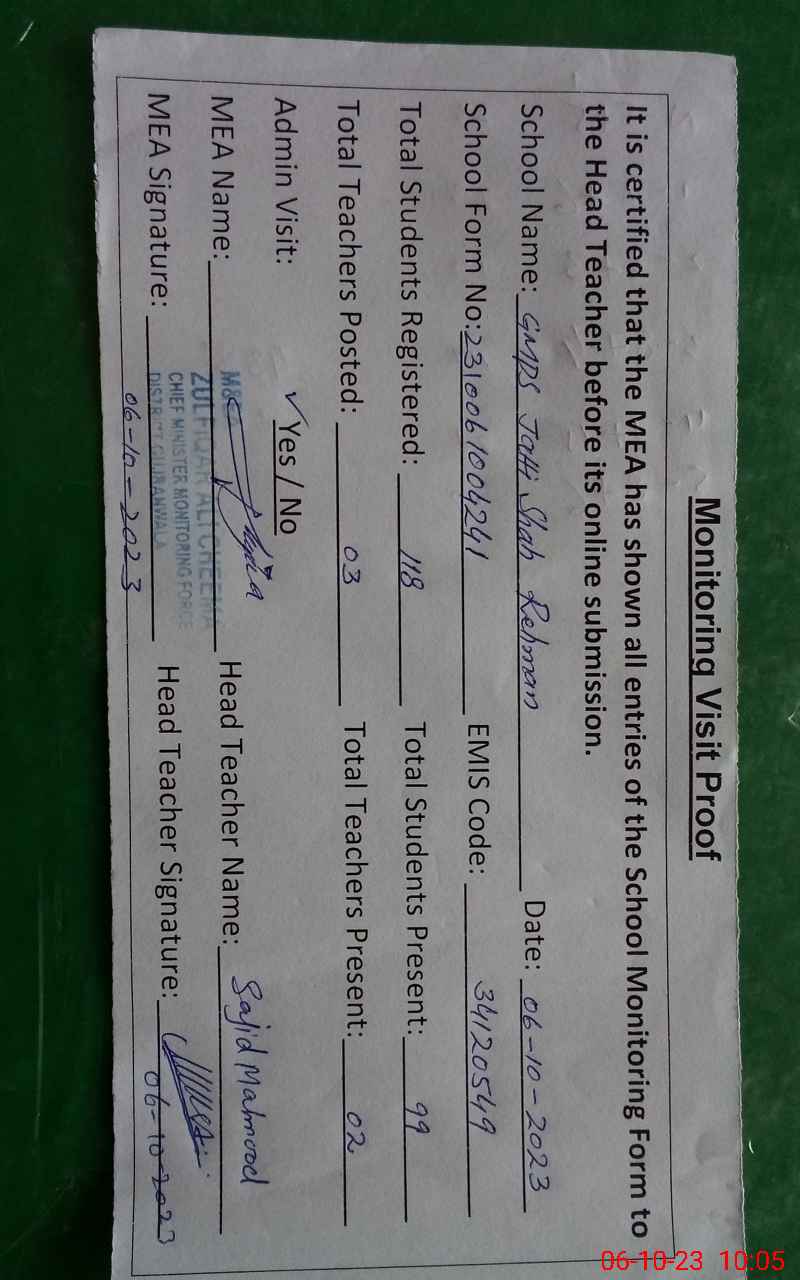 Monitoring Visit Proof
It is certified that the MEA has shown all entries of the School Monitoring Form to
the Head Teacher before its online submission.
School Name: GMPS Jatti Shah Rehman Date: 06-10-2023
School Form No: 2310061004241 EMIS Code: 34120549
Total Students Registered: 118 Total Students Present: 99
Total Teachers Posted: 03 Total Teachers Present: 02
Admin Visit: ✓ Yes / No
MEA Name: Head Teacher Name: Sajid Mahmood
ZULFIQAR ALI CHEEMA
CHIEF MINISTER MONITORING FORCE
DISTRICT GUJRANWALA
MEA Signature: Head Teacher Signature:
06-10-2023 06-10-2023
06-10-23 10:05